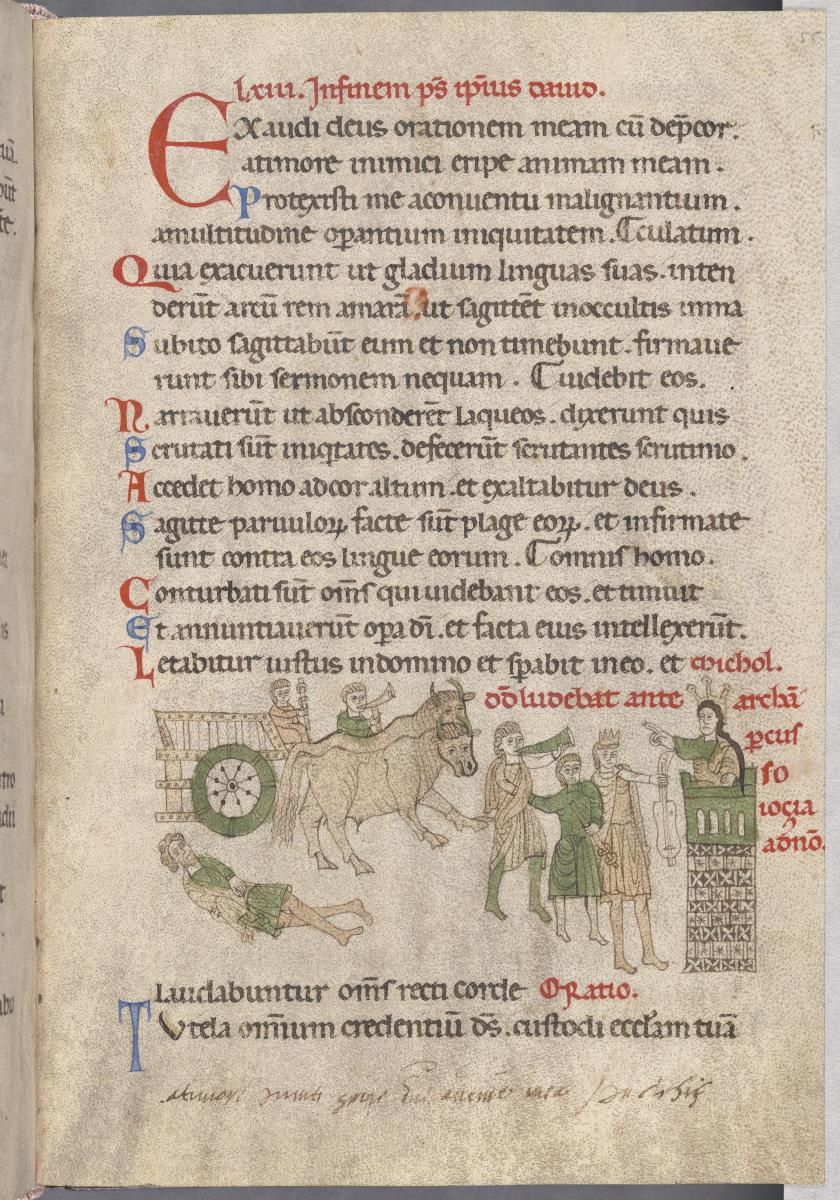 lxiii. Jnfinem ps̄ ip̄ius dauid.
EXaudi deus orationem meam cū dep̄cor.
atimore inimici eripe animam meam.
Protexisti me aconuentu malignantium.
amultitudine oꝑantium iniquitatem. Tculatum.
Quia exacuerunt ut gladium linguas suas. inten
derūt arcū rem amarā. ut sagittēt inoccultis imma
Subito sagittabūt eum et non timebunt. firmaue
runt sibi sermonem nequam. Tuidebit eos.
Narrauerūt ut absconderēt laqueos. dixerunt quis
Scrutati sūt iniq̇tates. defecerūt scrutantes scrutinio.
Accedet homo adcor altum. et exaltabitur deus.
Sagitte paruuloꝝ facte sūt plage eoꝝ. et infirmate
sunt contra eos lingue eorum. Tomnis homo.
Conturbati sūt om̄s qui uidebant eos. et timuit
Et annuntiauerūt oꝑa dī. et facta eius intellexerūt.
Letabitur iustus indomino et sꝑabit ineo. et michol.
dd̄ ludebat ante archā
ꝑcus
so
iocia
adn̄o.
laudabuntur om̄s recti corde Oratio.
TVtela omīum credentiū ds̄. custodi eccl̄am tuā